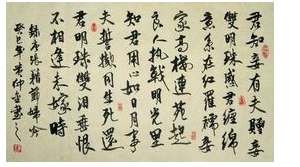 君知妾有夫贈妾
雙明珠感君纏綿
意系在紅羅襦妾
家高樓連苑起
良人執戟明光里
知君用心如日月事
夫誓擬同生死還
君明珠雙泪垂恨
不相逢未嫁時
張籍節婦吟
癸巳年